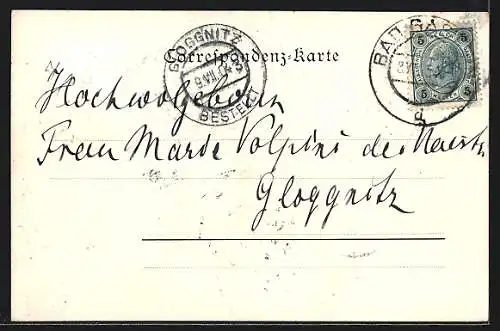 Correspondenz-Karte
GLOGGNITZ
BESTELLT
BAD GAS
5 5
5 5
Hochwolgeboren
Frau Marie Volpini de
Gloggnitz